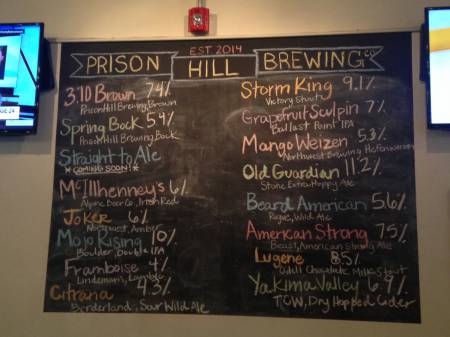 EST. 2014
PRISON HILL BREWING CO
3:10 Brown 7.4%
Prison Hill Brewing, Brown
Spring Bock 5.9%
Prison Hill Brewing, Bock
Straight to Ale
* COMING SOON! *
McIlhenney's 6%
Alpine Beer Co., Irish Red
Joker 6%
Northwest, Amber
Mojo Rising 10%
Boulder, Double IPA
Framboise 4%
Lindemans, Lambic
Citrana 4.3%
Borderland, Sour Wild Ale
Storm King 9.1%
Victory Stout
Grapefruit Sculpin 7%
Ballast Point IPA
Mango Weizen 5.3%
Northwest Brewing, Hefeweizen
Old Guardian 11.2%
Stone Extra Hoppy Ale
Beard American 5.6%
Rogue, Wild Ale
American Strong 7.5%
Beast, American Strong Ale
Lugene 8.5%
Odell Chocolate Milk Stout
Yakima Valley 6.9%
TCW, Dry Hopped Cider